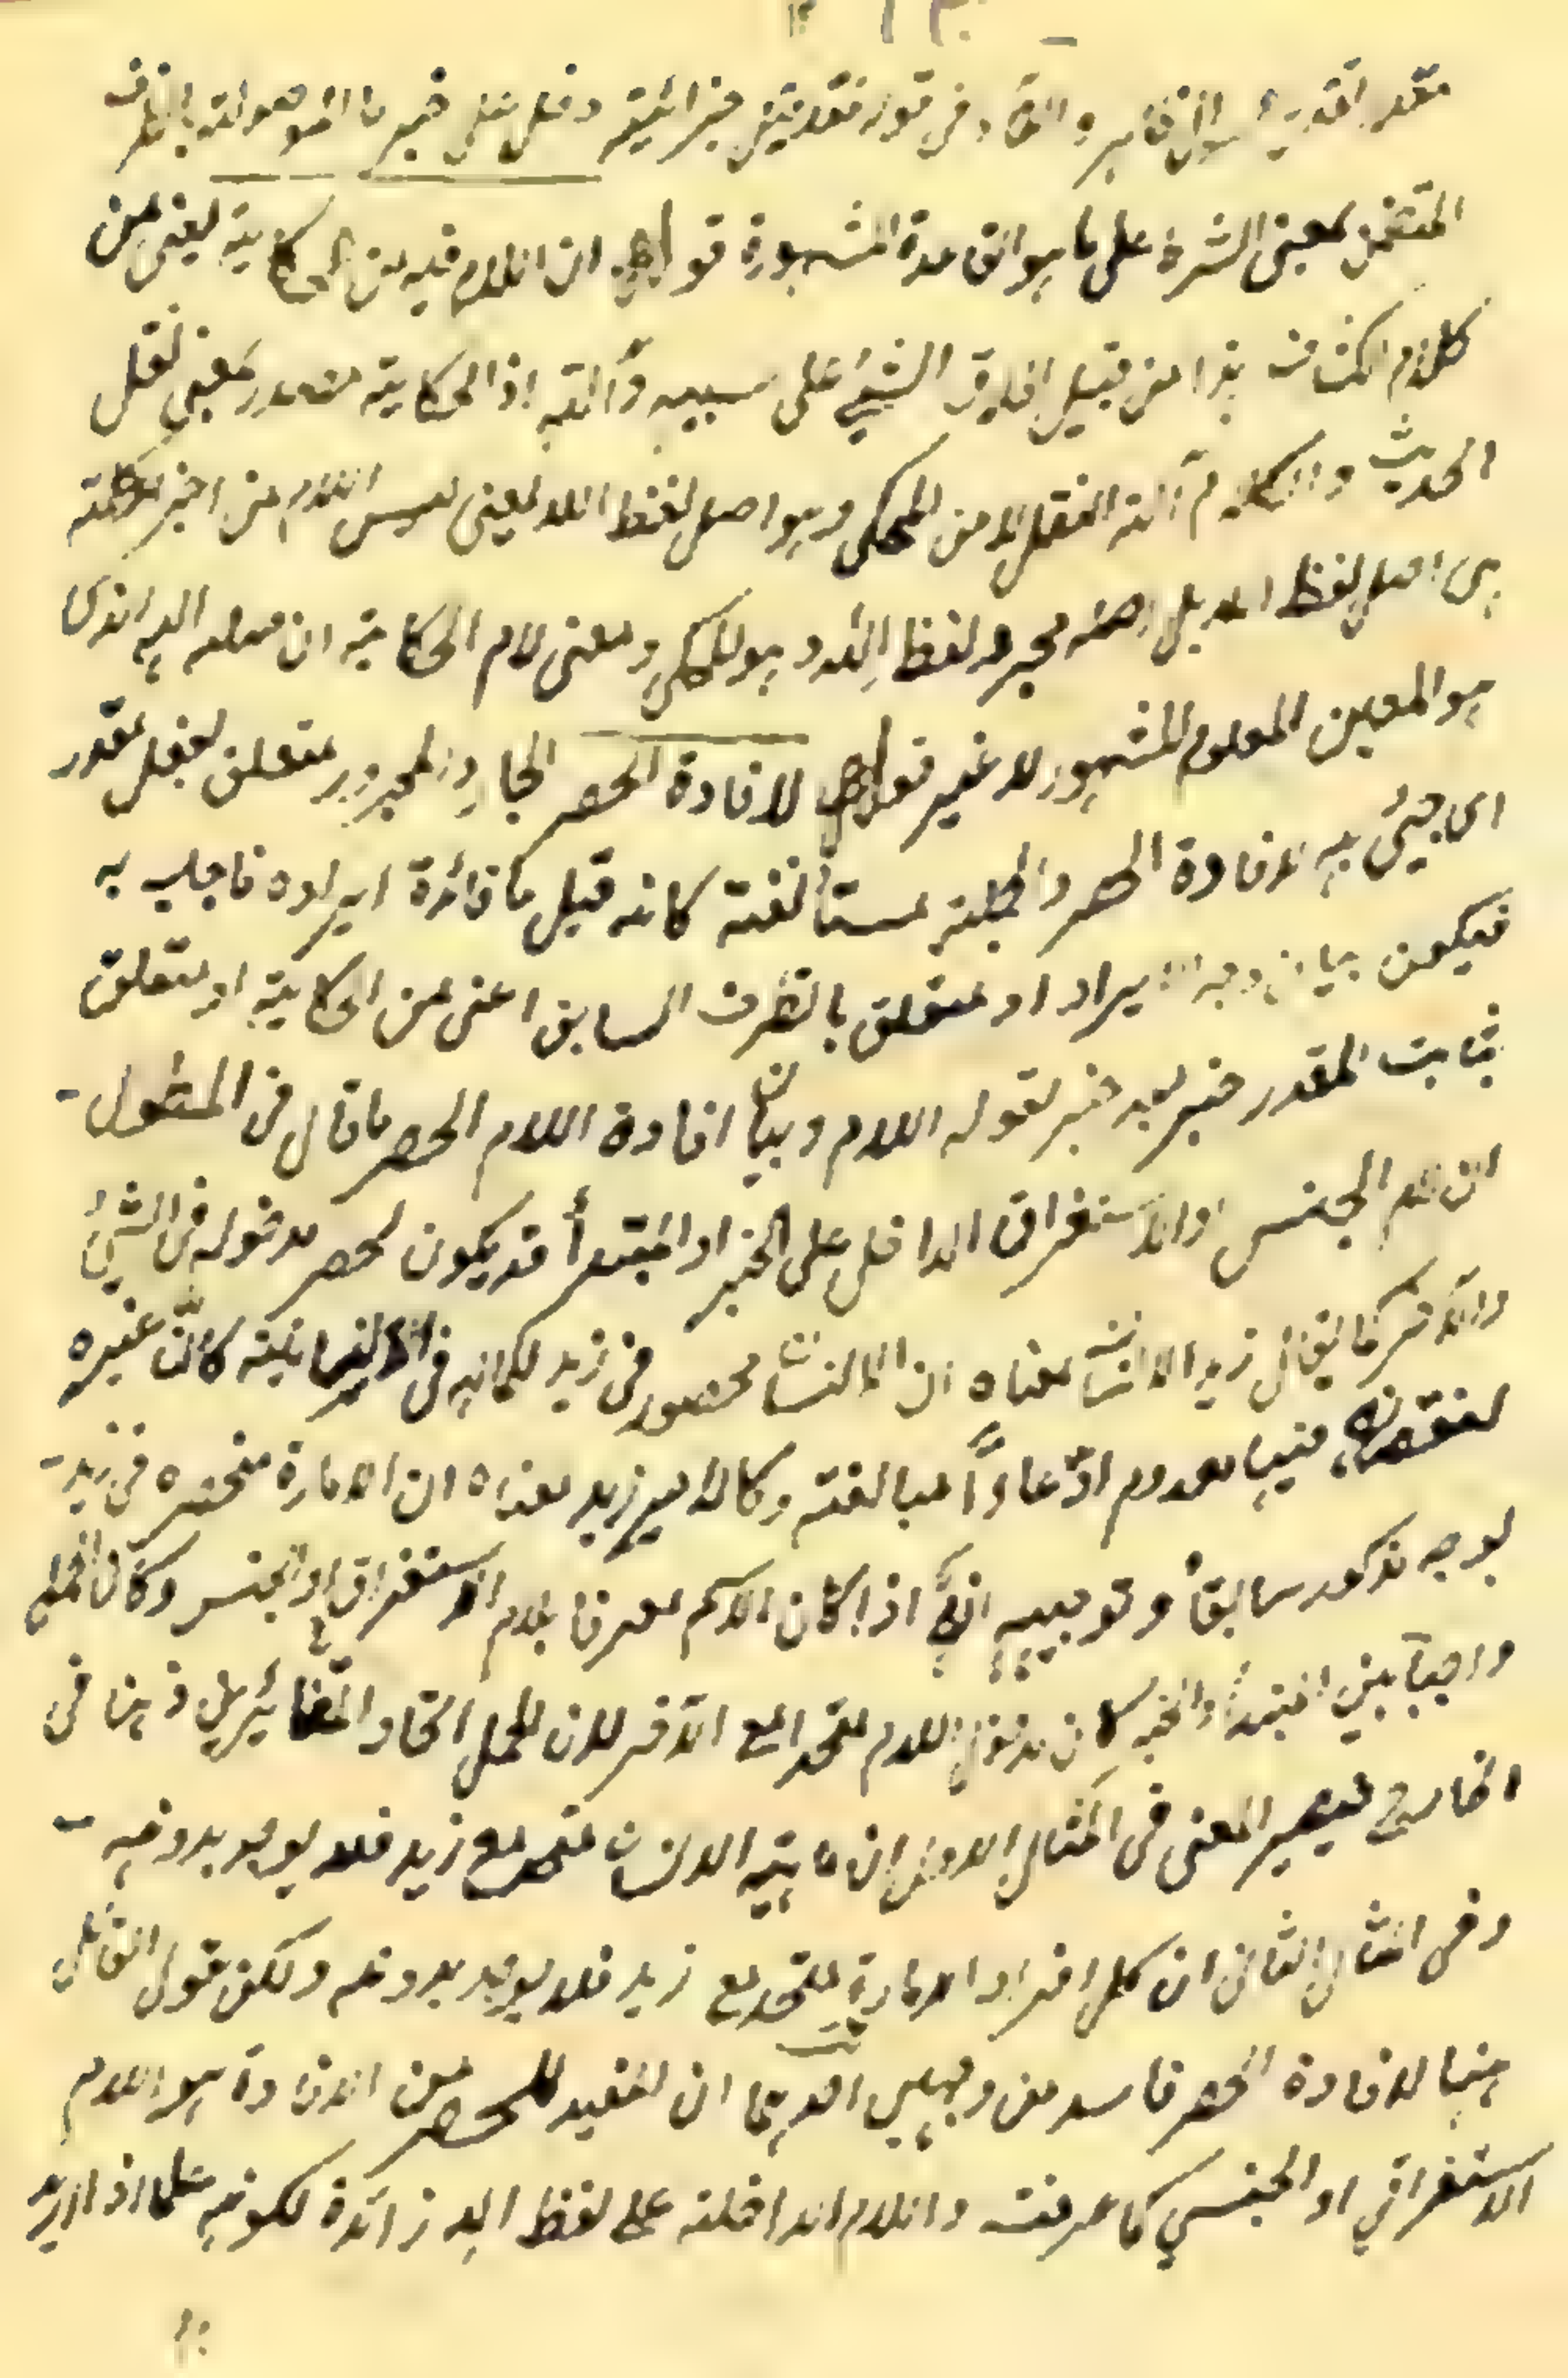 المتضمن لمعنى الشرط على ما هو القاعدة المشهورة قوله ان اللام فيه من الحكاية يعني من
كلام هذا من قبيل اطلاق الشيء على سببه وآلته اذ الحكاية مصدر بمعنى نقل
الحديث والكلام آلة النقل لا من المحكي وهو اصل لفظ الله يعني ليس اللام من اجزاء كلمة
هي اصل لفظ الله بل اصله مجرد لفظ اله وهو المحكي ومعنى لام الحكاية ان الذي
هو المعين المعلوم المشهور لا غير قوله لافادة الحصر الجار والمجرور متعلق بفعل مقدر
اي جيئ به لافادة الحصر والجملة مستأنفة كانه قيل ما فائدة ايراده فاجاب به
فيكون بيان وجه الايراد او متعلق بالظرف السابق اعني من الحكاية او متعلق
ثابت المقدر خبر بعد خبر لقوله اللام وبيان افادة اللام الحصر ما قال في المطول
ان لام الجنس او الاستغراق الداخل على الخبر او المبتدأ قد يكون لحصر مدخوله في الشيئ
والآخر كما يقال زيد الانسان معناه ان الانسان محصور في زيد لكماله في الانسانية كأن غيره
لنقصانه فيها معدوم ادعاءً مبالغة وكالامير زيد معناه ان الامارة منحصرة في زيد
بوجه مذكور سابقاً وتوجيهه انه اذا كان الاسم معرفا بلام الاستغراق او الجنس وكان الحمل
واجباً بين المبتدأ والخبر كان مدخول اللام متحدا مع الآخر لان الحمل اتحاد المتغايرين ذهنا في
الخارج فيصير المعنى في المثال الاول ان ماهية الانسان متحد مع زيد فلا يوجد بدونه
وفي المثال الثاني ان كل افراد الامارة متحد مع زيد فلا يوجد بدونه ولكن قول القائل
هنا لافادة الحصر فاسد من وجهين احدهما ان المفيد للحصر من الاداة هو اللام
الاستغراقي او الجنسي كما عرفت واللام الداخلة على لفظ اله زائدة لكونه علما اذ